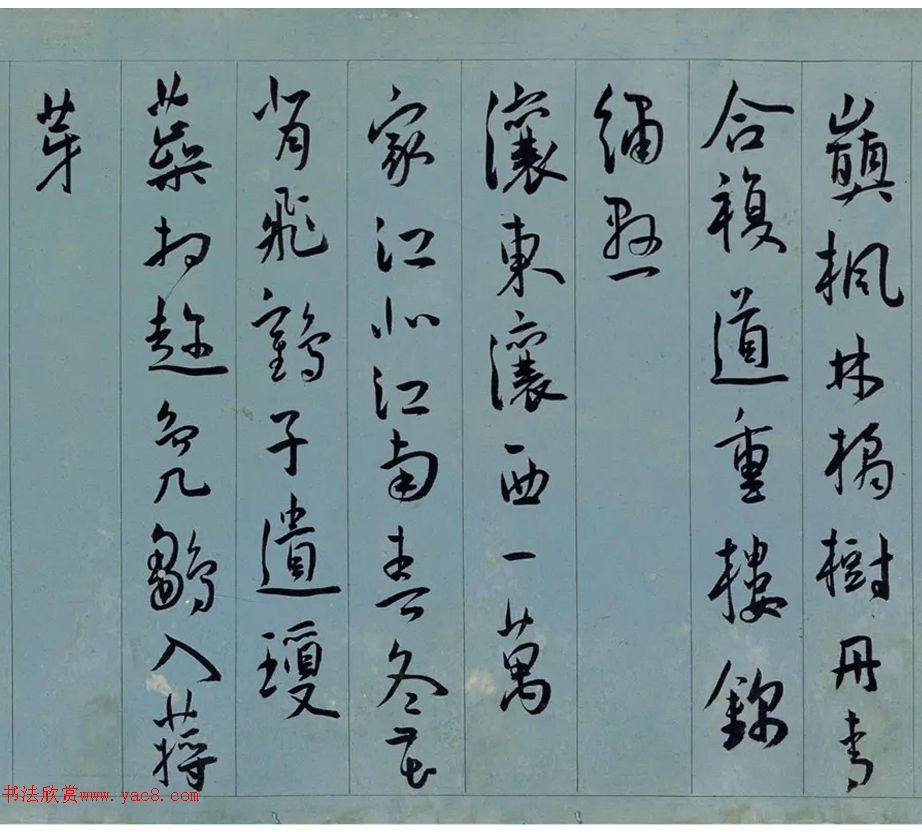 巔楓林橘樹丹青
合複道重樓錦
繡懸
瀼東瀼西一萬
家江北江南春冬花
背飛鶴子遺瓊
蘂相趁鳧鶵入蔣
芽
书法欣赏www.yac8.com